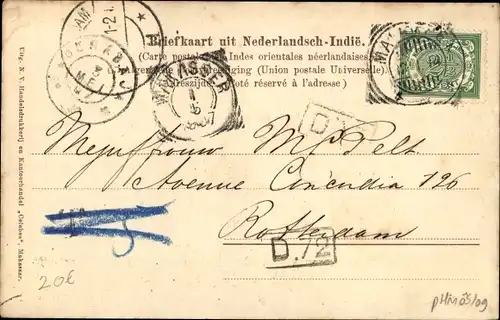 Briefkaart uit Nederlandsch-Indië.
(Carte postale des Indes orientales néerlandaises.)
Algemeene Postvereeniging (Union postale Universelle).
Adreszijde. (Côté réservé à l'adresse)
MAKASSER
D.
Mejuffrouw M. Pelt
Avenue Concordia 126
Rotterdam
D.12
T
20€
Uitg. N. V. Handelsdrukkerij en Kantoorhandel „Celebes”, Makassar.